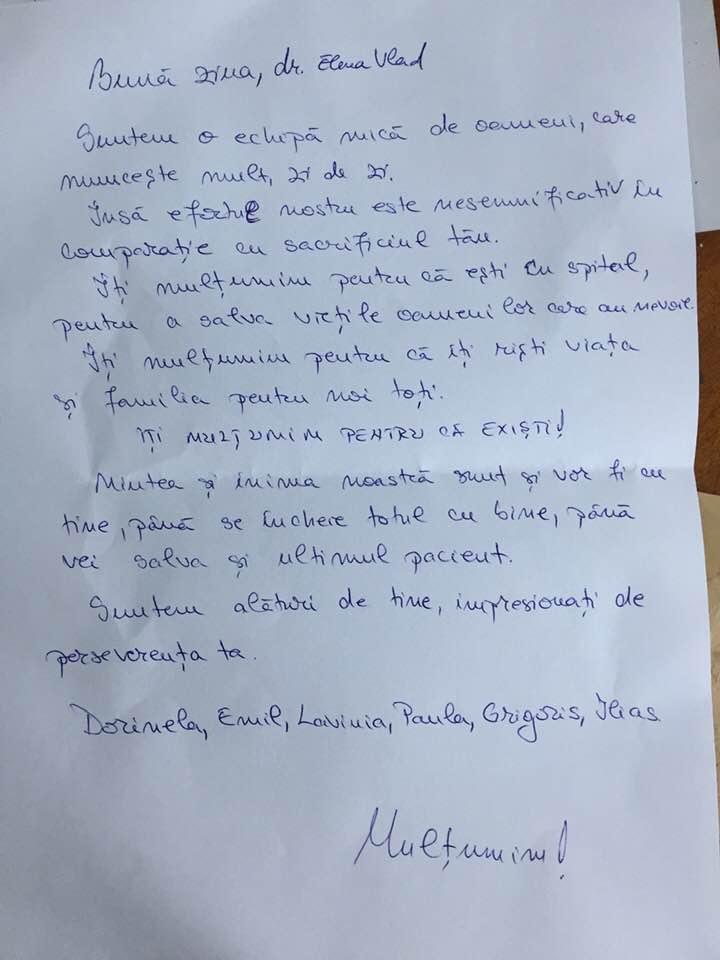 Bună ziua, dr. Elena Vlad
Suntem o echipă mică de oameni, care
muncește mult, zi de zi.
Însă efortul nostru este nesemnificativ în
comparație cu sacrificiul tău.
Iți mulțumim pentru că ești în spital,
pentru a salva viețile oamenilor care au nevoie.
Iți mulțumim pentru că îți riști viața
și familia pentru noi toți.
IȚI MULȚUMIM PENTRU CĂ EXIȘTI!
Mintea și inima noastră sunt și vor fi cu
tine, până se încheie totul cu bine, până
vei salva și ultimul pacient.
Suntem alături de tine, impresionați de
perseverența ta.
Dorinela, Emil, Lavinia, Paula, Grigoris, Ilias
Mulțumim!